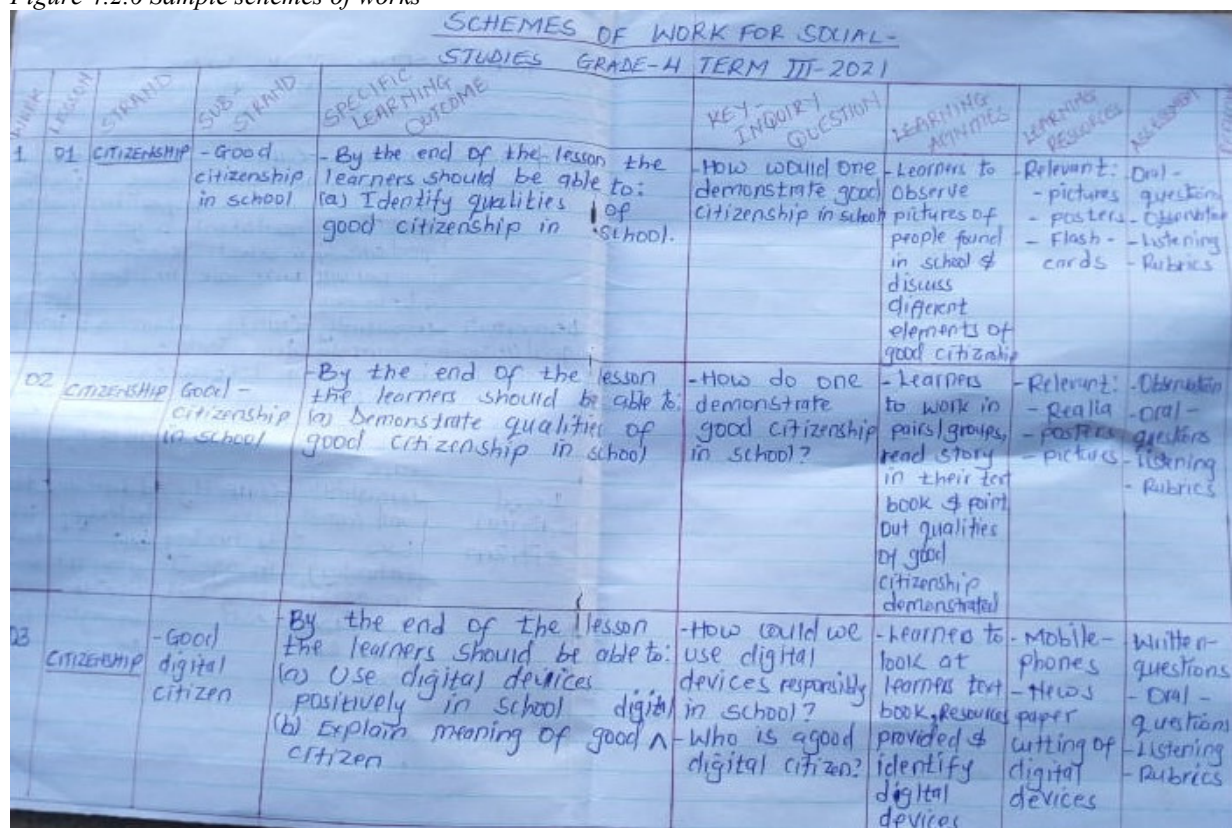 Figure 4.2.6 Sample schemes of works
SCHEMES OF WORK FOR SOCIAL-
STUDIES GRADE-4 TERM III-2021
LESSON
STRAND
SUB-
STRAND
SPECIFIC
LEARNING
OUTCOME
KEY-
INQUIRY
QUESTION
LEARNING
ACTIVITIES
LEARNING
RESOURCES
1
01
CITIZENSHIP
- Good
citizenship
in school
- By the end of the lesson the
learners should be able to:
(a) Identify qualities of
good citizenship in school.
- How would one
demonstrate good
citizenship in school
- Learners to
observe
pictures of
people found
in school &
discuss
different
elements of
good citizenship
- Relevant:
- pictures
- posters
- Flash-
cards
Oral-
questions
- Observation
- Listening
- Rubrics
02
CITIZENSHIP
Good-
citizenship
in school
- By the end of the lesson
the learners should be able to:
(a) Demonstrate qualities of
good citizenship in school
- How do one
demonstrate
good citizenship
in school?
- Learners
to work in
pairs/groups,
read story
in their text
book & point
out qualities
of good
citizenship
demonstrated
- Relevant:
- Realia
- posters
- pictures
- Observation
- oral-
questions
- Listening
- Rubrics
03
CITIZENSHIP
- Good
digital
citizen
- By the end of the lesson
the learners should be able to:
(a) Use digital devices
positively in school
(b) Explain meaning of good ^ digital
citizen
- How could we
use digital
devices responsibly
in school?
- Who is a good
digital citizen?
- Learners to
look at
learners text
book, Resources
provided &
identify
digital
devices
- Mobile-
phones
- News
paper
cutting of
digital
devices
Written-
questions
- Oral-
questions
- Listening
- Rubrics